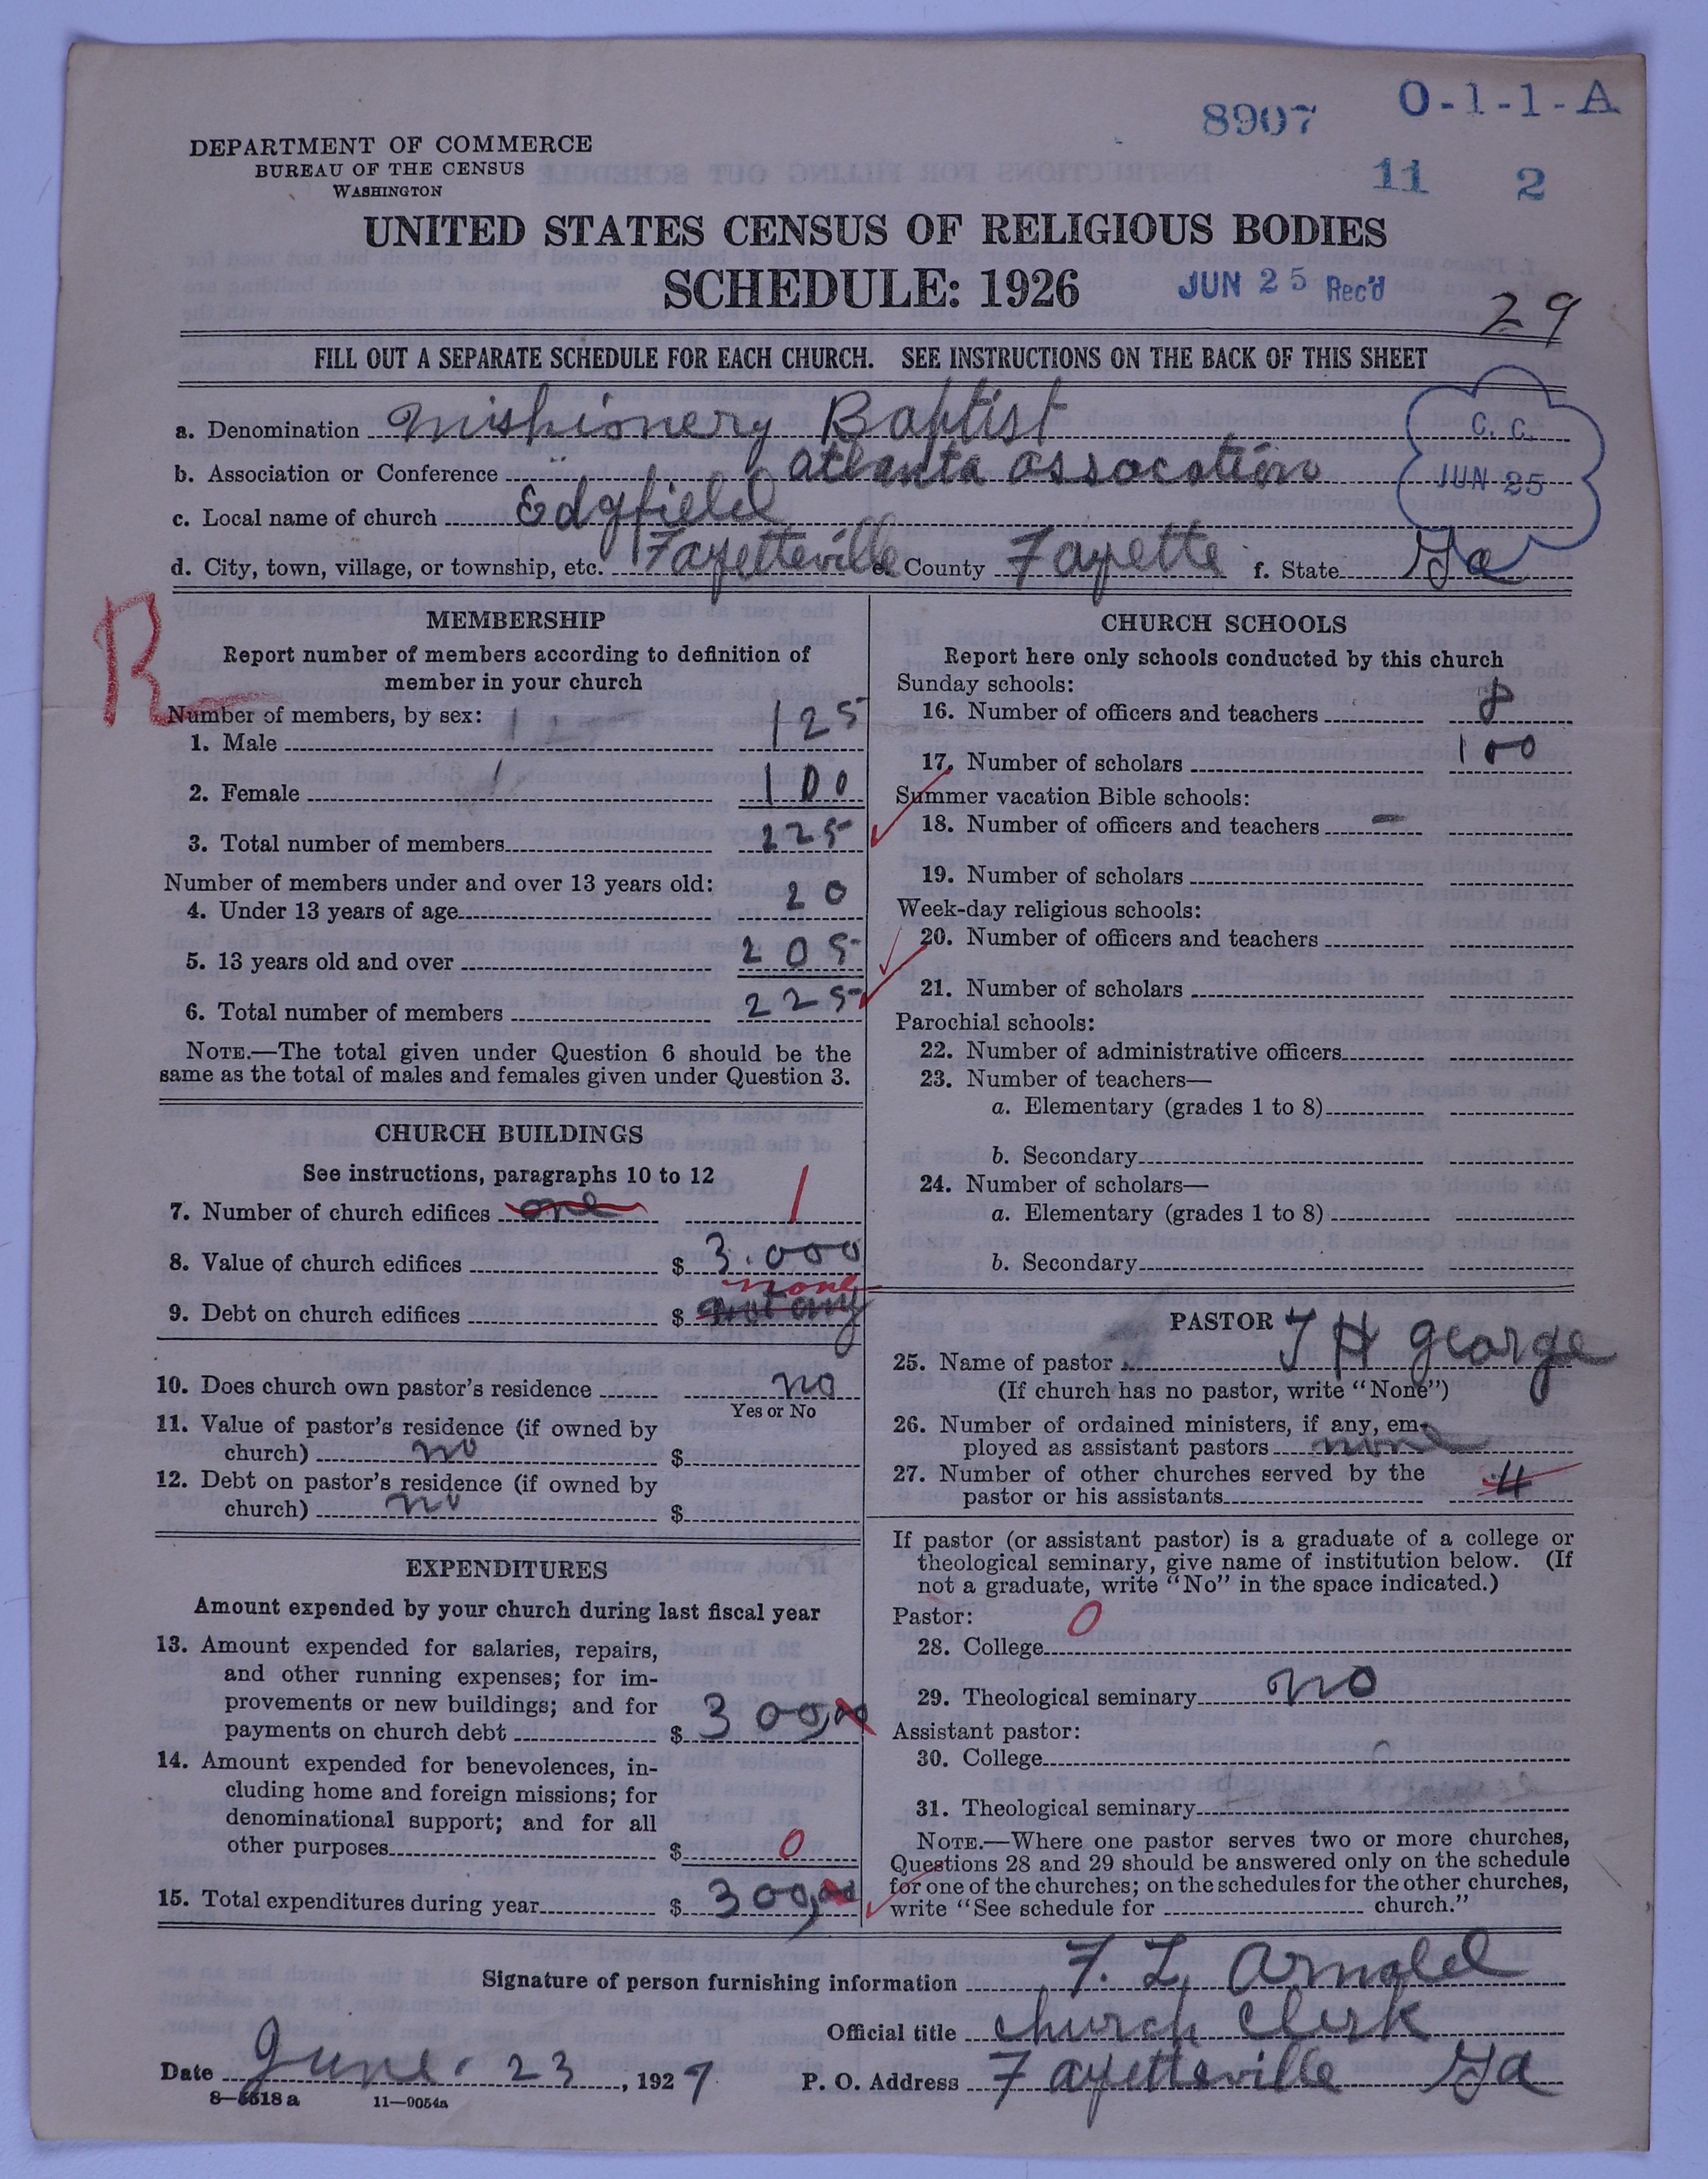 8907
O-1-1-A
DEPARTMENT OF COMMERCE
BUREAU OF THE CENSUS
WASHINGTON
11 2
UNITED STATES CENSUS OF RELIGIOUS BODIES
SCHEDULE: 1926
JUN 25 Rec'd
29
FILL OUT A SEPARATE SCHEDULE FOR EACH CHURCH. SEE INSTRUCTIONS ON THE BACK OF THIS SHEET
a. Denomination Mishionery Baptist
C. C.
b. Association or Conference atlanta assocation
JUN 25
c. Local name of church Edgfield
d. City, town, village, or township, etc. Fayetteville e. County Fayette f. State Ga
R
MEMBERSHIP
Report number of members according to definition of
member in your church
Number of members, by sex:
1. Male 125
2. Female 100
3. Total number of members 225
Number of members under and over 13 years old:
4. Under 13 years of age 20
5. 13 years old and over 205
6. Total number of members 225
NOTE.—The total given under Question 6 should be the
same as the total of males and females given under Question 3.
CHURCH BUILDINGS
See instructions, paragraphs 10 to 12
7. Number of church edifices one 1
8. Value of church edifices $ 3.000
none
9. Debt on church edifices $ not any
10. Does church own pastor's residence no
Yes or No
11. Value of pastor's residence (if owned by
church) no $
12. Debt on pastor's residence (if owned by
church) no $
EXPENDITURES
Amount expended by your church during last fiscal year
13. Amount expended for salaries, repairs,
and other running expenses; for im-
provements or new buildings; and for
payments on church debt $ 300,00
14. Amount expended for benevolences, in-
cluding home and foreign missions; for
denominational support; and for all
other purposes $ 0
15. Total expenditures during year $ 300,00
CHURCH SCHOOLS
Report here only schools conducted by this church
Sunday schools:
16. Number of officers and teachers 8
17. Number of scholars 100
Summer vacation Bible schools:
18. Number of officers and teachers –
19. Number of scholars
Week-day religious schools:
20. Number of officers and teachers
21. Number of scholars
Parochial schools:
22. Number of administrative officers
23. Number of teachers—
a. Elementary (grades 1 to 8)
b. Secondary
24. Number of scholars—
a. Elementary (grades 1 to 8)
b. Secondary
PASTOR
25. Name of pastor T H george
(If church has no pastor, write "None")
26. Number of ordained ministers, if any, em-
ployed as assistant pastors none
27. Number of other churches served by the
pastor or his assistants 4
If pastor (or assistant pastor) is a graduate of a college or
theological seminary, give name of institution below. (If
not a graduate, write "No" in the space indicated.)
Pastor:
28. College 0
29. Theological seminary no
Assistant pastor:
30. College
31. Theological seminary
NOTE.—Where one pastor serves two or more churches,
Questions 28 and 29 should be answered only on the schedule
for one of the churches; on the schedules for the other churches,
write "See schedule for church."
Signature of person furnishing information F. L. Arnold
Official title church clerk
Date June. 23, 1927. P. O. Address Fayetteville Ga
8—5518 a 11—9054a